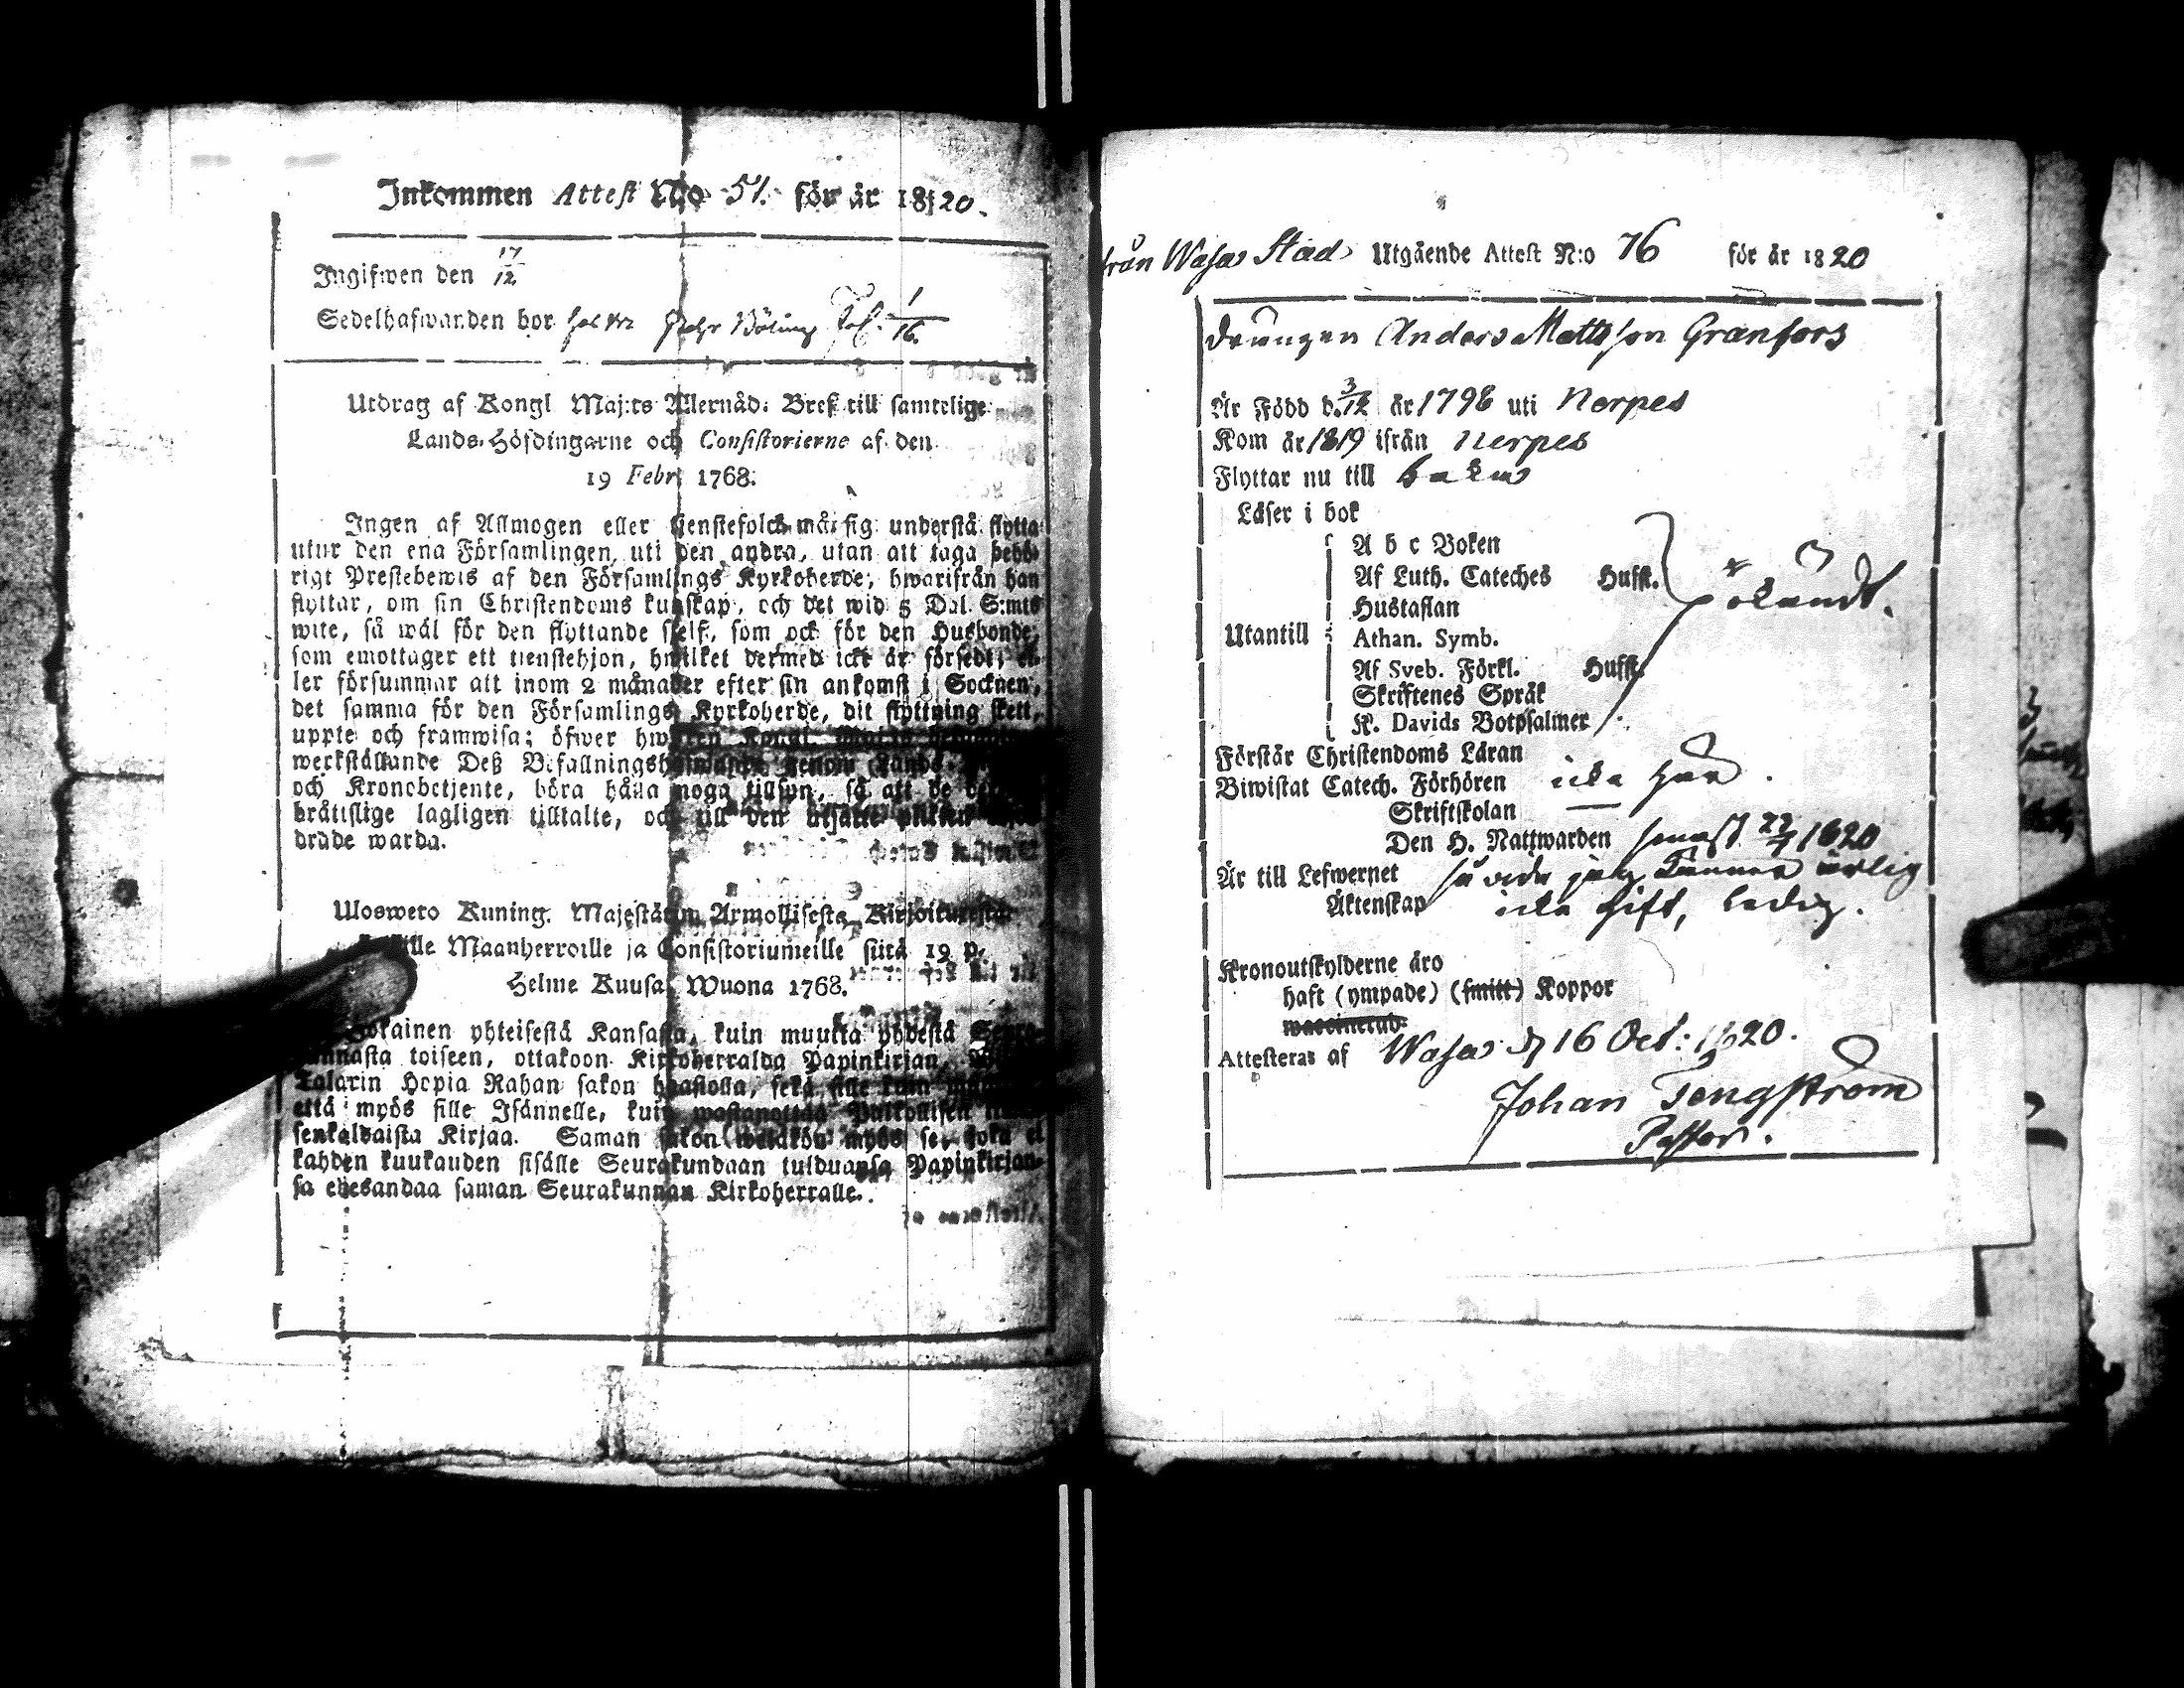 Inkommen Attest N:o 51. för år 1820.
Ingifwen den 17/12
Sedelhafwanden bor hos Fol. 1/16.
Utdrag af Kongl Maj:ts Allernåd. Bref till samtelige
Lands-Höfdingarne och Consistorierne af den
19 Febr. 1768.
Ingen af Allmogen eller tienstefolck må sig understå flytta
utur den ena Församlingen, uti den andra, utan att taga behö-
rigt Prestebewis af den Församlings Kyrkoherde, hwarifrån han
flyttar, om sin Christendoms kunskap, och det wid 5 Dal. S:mts
wite, så wäl för den flyttande sjelf, som ock för den Husbonde,
som emottager ett tienstehjon, hwilket dermed icke är försedt; el-
ler försummar att inom 2 månader efter sin ankomst i Socknen,
det samma för den Församlings Kyrkoherde, dit flyttning skett,
uppte och framwisa; öfwer hwilken Kongl. Maj:ts
werkställande Deß Befallningshafwande genom Lands-
och Kronobetjente, böra hålla noga tillsyn, så att de
brättslige lagligen tilltalte, och till den utsatte plikten
dräde warda.
Ulosweto Kuning. Majestätin Armollisesta Kirjoituxesta
kille Maanherroille ja Consistoriumeille siitä 19 p.
Helme Kuusa Wuona 1768.
Jokainen yhteisestä Kansasta, kuin muutta yhdestä Seura-
kunnasta toiseen, ottakoon Kirkoherralda Papinkirjan,
Talarin Hopia Rahan sakon haastolla, sekä sille kuin
että myös sille Isännelle, kuin wastanottaa Palkollisen
senkaldaista Kirjaa. Saman sakon wetäkön myös se, joka ei
kahden kuukauden sisälle Seurakundaan tulduansa Papinkirjan-
sa edesandaa saman Seurakunnan Kirkoherralle.
från Wasa Stad Utgående Attest N:o 76 för år 1820
Drängen Anders Mattsson Granfors
Är Född d. 3/12 år 1798 uti Nerpes
Kom år 1819 ifrån Nerpes
Flyttar nu till
Läser i bok
A b c Boken
Af Luth. Cateches Husfl.
Hustaflan
Utantill Athan. Symb.
Af Sveb. Förkl. Husfl.
Skriftenes Språk
K. Davids Botpsalmer
Förstår Christendoms Läran
Biwistat Catech. Förhören icke här.
Skriftskolan —
Den H. Nattwarden senast 22/7 1820
Är till Lefwernet så vida jag känner ärlig
Äktenskap icke gift, ledig.
Kronoutskylderne äro
haft (ympade) (smitt) Koppor
waccinerad.
Attesteras af Wasa d. 16 Oct: 1820.
Johan Tengström
Pastor.